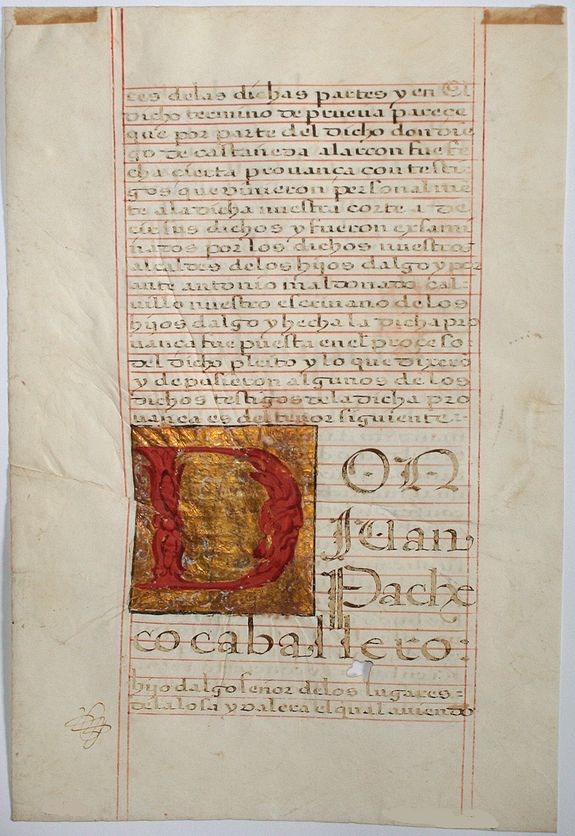 tes delas dichas partes y en El
dicho termino de prueva pareçe
que por parte del dicho don die
go de castañeda alarcon fue fe
cha cierta provança con testi
gos que vinieron personalme
te ala dicha nuestra corte a de
cir sus dichos y fueron exsami
nados por los dichos nuestros
alcaldes delos hijos dalgo y por
ante antonio maldonado cal
villo nuestro escrivano de los
hijos dalgo y hecha la dicha pro
vança fue puesta en el proceso
del dicho pleito y lo que dixero
y depusieron algunos de los
dichos testigos dela dicha pro
vança es del tenor siguiente
DON
Juan
Pache
co caballero:
hijo dalgo señor delos lugares
dela losa y valera el qual aviendo